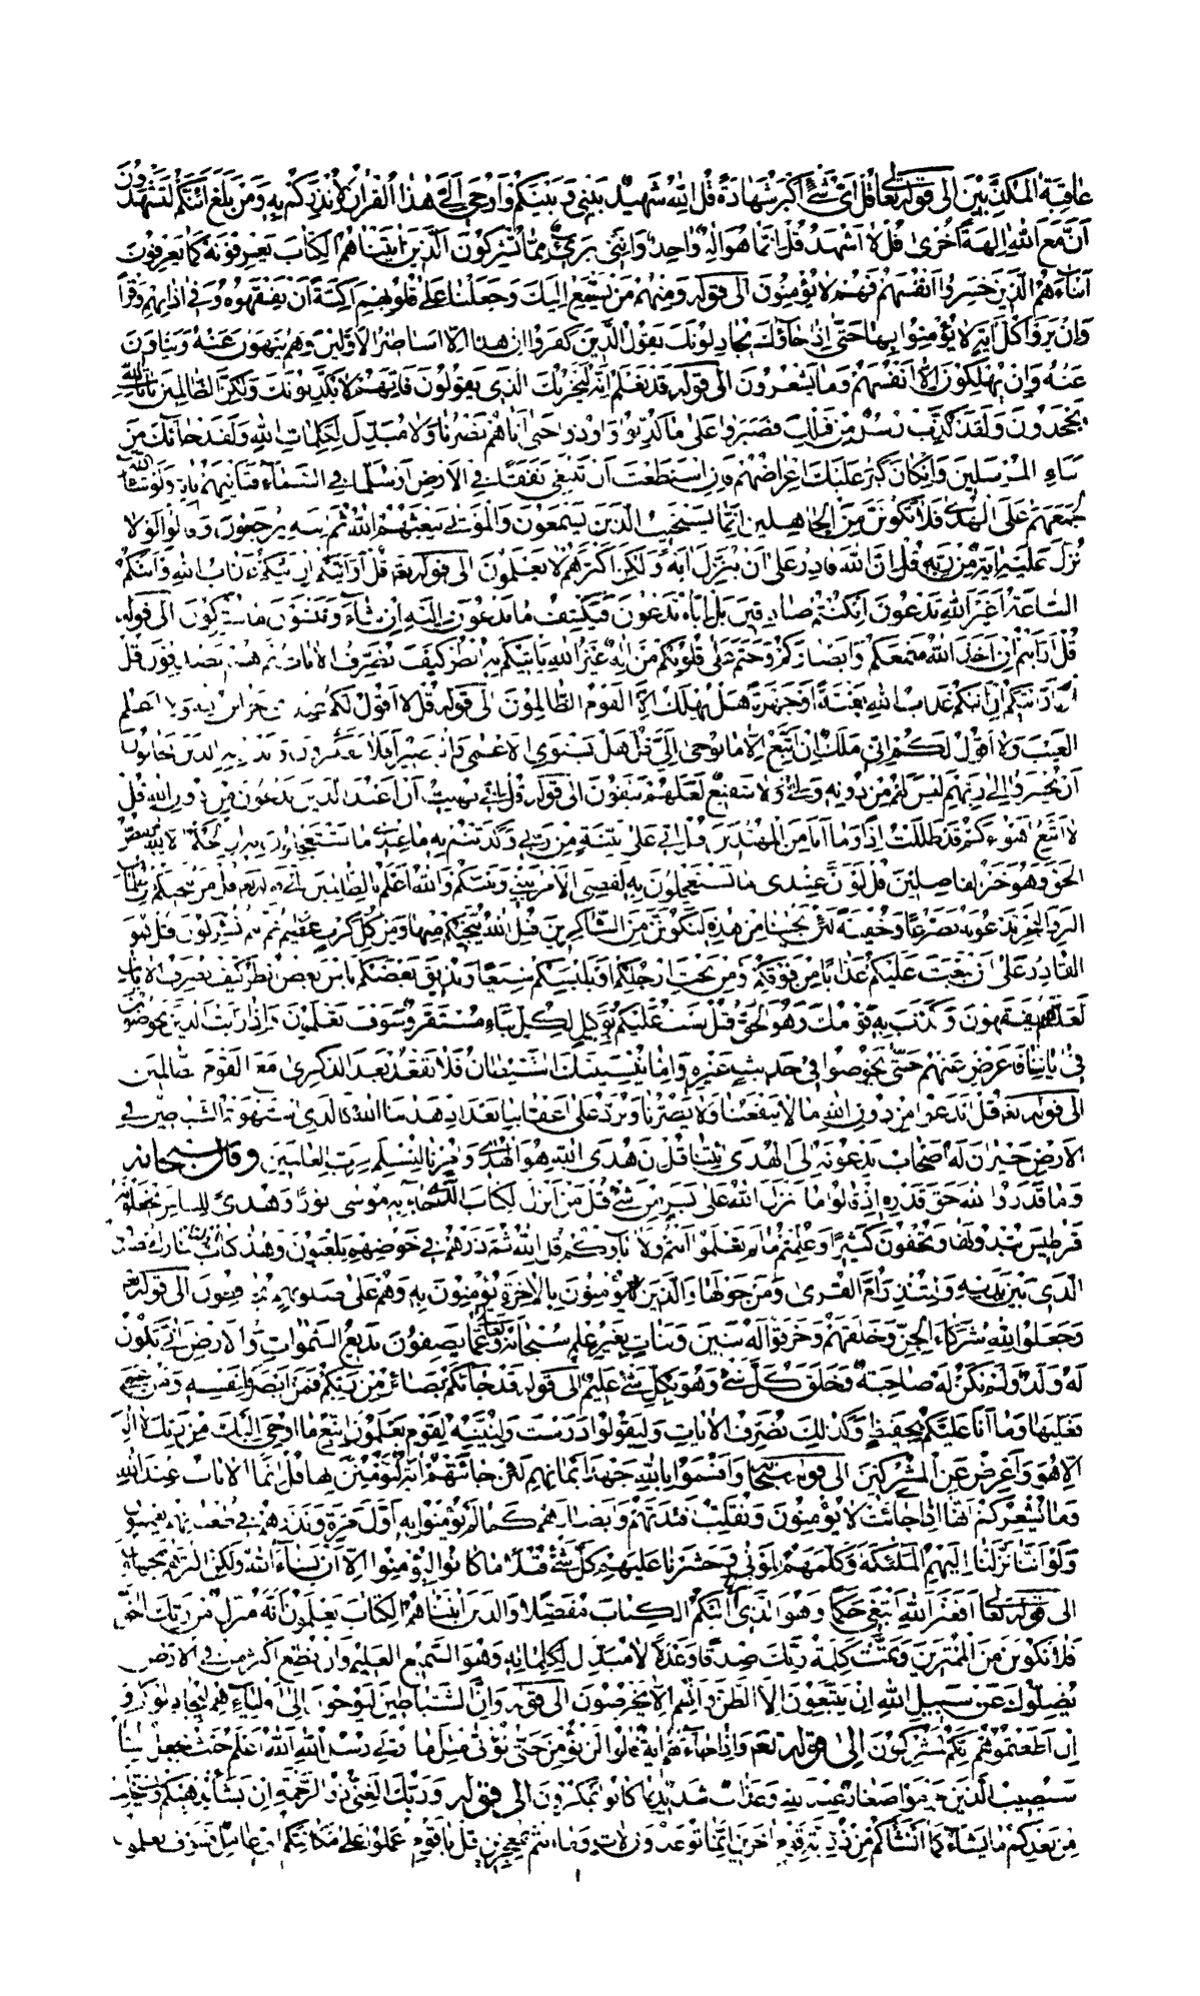 عٰاقِبَةُ الْمُكَذِّبِينَ الى قوله تعالى قُلْ اَىُّ شَىْءٍ اَكْبَرُ شَهٰادَةً قُلِ اللّٰهُ شَهِيدٌ بَيْنِى وَبَيْنَكُمْ وَاُوحِىَ اِلَىَّ هٰذَا الْقُرْآنُ لِاُنْذِرَكُمْ بِهِ وَمَنْ بَلَغَ اَئِنَّكُمْ لَتَشْهَدُونَ
اَنَّ مَعَ اللّٰهِ اٰلِهَةً اُخْرىٰ قُلْ لاٰ اَشْهَدُ قُلْ اِنَّمٰا هُوَ اِلٰهٌ وٰاحِدٌ وَاِنَّنِى بَرِىءٌ مِمّٰا تُشْرِكُونَ اَلَّذِينَ اٰتَيْنٰاهُمُ الْكِتٰابَ يَعْرِفُونَهُ كَمٰا يَعْرِفُونَ
اَبْنٰاءَهُمْ الَّذِينَ خَسِرُوا اَنْفُسَهُمْ فَهُمْ لاٰ يُؤْمِنُونَ الى قوله وَمِنْهُمْ مَنْ يَسْتَمِعُ اِلَيْكَ وَجَعَلْنٰا عَلىٰ قُلُوبِهِمْ اَكِنَّةً اَنْ يَفْقَهُوهُ وَفِى اٰذٰانِهِمْ وَقْراً
وَاِنْ يَرَوْا كُلَّ اٰيَةٍ لاٰ يُؤْمِنُوا بِهٰا حَتّىٰ اِذٰا جٰاؤُكَ يُجٰادِلُونَكَ يَقُولُ الَّذِينَ كَفَرُوا اِنْ هٰذٰا اِلاّٰ اَسٰاطِيرُ الْاَوَّلِينَ وَهُمْ يَنْهَوْنَ عَنْهُ وَيَنْاَوْنَ
عَنْهُ وَاِنْ يُهْلِكُونَ اِلاّٰ اَنْفُسَهُمْ وَمٰا يَشْعُرُونَ الى قوله قَدْ نَعْلَمُ اِنَّهُ لَيَحْزُنُكَ الَّذِى يَقُولُونَ فَاِنَّهُمْ لاٰ يُكَذِّبُونَكَ وَلٰكِنَّ الظّٰالِمِينَ بِاٰيٰاتِ اللّٰهِ
يَجْحَدُونَ وَلَقَدْ كُذِّبَتْ رُسُلٌ مِنْ قَبْلِكَ فَصَبَرُوا عَلىٰ مٰا كُذِّبُوا وَاُوذُوا حَتّىٰ اَتٰاهُمْ نَصْرُنٰا وَلاٰ مُبَدِّلَ لِكَلِمٰاتِ اللّٰهِ وَلَقَدْ جٰاءَكَ مِنْ
نَبَاءِ الْمُرْسَلِينَ وَاِنْ كٰانَ كَبُرَ عَلَيْكَ اِعْرٰاضُهُمْ فَاِنِ اسْتَطَعْتَ اَنْ تَبْتَغِىَ نَفَقاً فِى الْاَرْضِ اَوْ سُلَّماً فِى السَّمٰاءِ فَتَأْتِيَهُمْ بِاٰيَةٍ وَلَوْ شٰاءَ اللّٰهُ
لَجَمَعَهُمْ عَلَى الْهُدىٰ فَلاٰ تَكُونَنَّ مِنَ الْجٰاهِلِينَ اِنَّمٰا يَسْتَجِيبُ الَّذِينَ يَسْمَعُونَ وَالْمَوْتىٰ يَبْعَثُهُمُ اللّٰهُ ثُمَّ اِلَيْهِ يُرْجَعُونَ وَقٰالُوا لَوْلاٰ
نُزِّلَ عَلَيْهِ اٰيَةٌ مِنْ رَبِّهِ قُلْ اِنَّ اللّٰهَ قٰادِرٌ عَلىٰ اَنْ يُنَزِّلَ اٰيَةً وَلٰكِنَّ اَكْثَرَهُمْ لاٰ يَعْلَمُونَ الى قوله تعالى قُلْ اَرَاَيْتَكُمْ اِنْ اَتٰيكُمْ عَذٰابُ اللّٰهِ اَوْ اَتَتْكُمُ
السّٰاعَةُ اَغَيْرَ اللّٰهِ تَدْعُونَ اِنْ كُنْتُمْ صٰادِقِينَ بَلْ اِيّٰاهُ تَدْعُونَ فَيَكْشِفُ مٰا تَدْعُونَ اِلَيْهِ اِنْ شٰاءَ وَتَنْسَوْنَ مٰا تُشْرِكُونَ الى قوله
قُلْ اَرَاَيْتُمْ اِنْ اَخَذَ اللّٰهُ سَمْعَكُمْ وَاَبْصٰارَكُمْ وَخَتَمَ عَلىٰ قُلُوبِكُمْ مَنْ اِلٰهٌ غَيْرُ اللّٰهِ يَأْتِيكُمْ بِهِ اُنْظُرْ كَيْفَ نُصَرِّفُ الْاٰيٰاتِ ثُمَّ هُمْ يَصْدِفُونَ قُلْ
اَرَاَيْتَكُمْ اِنْ اَتٰيكُمْ عَذٰابُ اللّٰهِ بَغْتَةً اَوْ جَهْرَةً هَلْ يُهْلَكُ اِلاَّ الْقَوْمُ الظّٰالِمُونَ الى قوله قُلْ لاٰ اَقُولُ لَكُمْ عِنْدِى خَزٰائِنُ اللّٰهِ وَلاٰ اَعْلَمُ
الْغَيْبَ وَلاٰ اَقُولُ لَكُمْ اِنِّى مَلَكٌ اِنْ اَتَّبِعُ اِلاّٰ مٰا يُوحىٰ اِلَىَّ قُلْ هَلْ يَسْتَوِى الْاَعْمىٰ وَالْبَصِيرُ اَفَلاٰ تَتَفَكَّرُونَ وَاَنْذِرْ بِهِ الَّذِينَ يَخٰافُونَ
اَنْ يُحْشَرُوا اِلىٰ رَبِّهِمْ لَيْسَ لَهُمْ مِنْ دُونِهِ وَلِىٌّ وَلاٰ شَفِيعٌ لَعَلَّهُمْ يَتَّقُونَ الى قوله قُلْ اِنِّى نُهِيتُ اَنْ اَعْبُدَ الَّذِينَ تَدْعُونَ مِنْ دُونِ اللّٰهِ قُلْ
لاٰ اَتَّبِعُ اَهْوٰاءَكُمْ قَدْ ضَلَلْتُ اِذاً وَمٰا اَنَا مِنَ الْمُهْتَدِينَ قُلْ اِنِّى عَلىٰ بَيِّنَةٍ مِنْ رَبِّى وَكَذَّبْتُمْ بِهِ مٰا عِنْدِى مٰا تَسْتَعْجِلُونَ بِهِ اِنِ الْحُكْمُ اِلاّٰ لِلّٰهِ يَقُصُّ
الْحَقَّ وَهُوَ خَيْرُ الْفٰاصِلِينَ قُلْ لَوْ اَنَّ عِنْدِى مٰا تَسْتَعْجِلُونَ بِهِ لَقُضِىَ الْاَمْرُ بَيْنِى وَبَيْنَكُمْ وَاللّٰهُ اَعْلَمُ بِالظّٰالِمِينَ الى قوله تعالى قُلْ مَنْ يُنَجِّيكُمْ مِنْ ظُلُمٰاتِ
الْبَرِّ وَالْبَحْرِ تَدْعُونَهُ تَضَرُّعاً وَخُفْيَةً لَئِنْ اَنْجٰانٰا مِنْ هٰذِهِ لَنَكُونَنَّ مِنَ الشّٰاكِرِينَ قُلِ اللّٰهُ يُنَجِّيكُمْ مِنْهٰا وَمِنْ كُلِّ كَرْبٍ ثُمَّ اَنْتُمْ تُشْرِكُونَ قُلْ هُوَ
الْقٰادِرُ عَلىٰ اَنْ يَبْعَثَ عَلَيْكُمْ عَذٰاباً مِنْ فَوْقِكُمْ اَوْ مِنْ تَحْتِ اَرْجُلِكُمْ اَوْ يَلْبِسَكُمْ شِيَعاً وَيُذِيقَ بَعْضَكُمْ بَأْسَ بَعْضٍ اُنْظُرْ كَيْفَ نُصَرِّفُ الْاٰيٰاتِ
لَعَلَّهُمْ يَفْقَهُونَ وَكَذَّبَ بِهِ قَوْمُكَ وَهُوَ الْحَقُّ قُلْ لَسْتُ عَلَيْكُمْ بِوَكِيلٍ لِكُلِّ نَبَاءٍ مُسْتَقَرٌّ وَسَوْفَ تَعْلَمُونَ وَاِذٰا رَاَيْتَ الَّذِينَ يَخُوضُونَ
فِى اٰيٰاتِنٰا فَاَعْرِضْ عَنْهُمْ حَتّىٰ يَخُوضُوا فِى حَدِيثٍ غَيْرِهِ وَاِمّٰا يُنْسِيَنَّكَ الشَّيْطٰانُ فَلاٰ تَقْعُدْ بَعْدَ الذِّكْرىٰ مَعَ الْقَوْمِ الظّٰالِمِينَ
الى قوله تعالى قُلْ اَنَدْعُوا مِنْ دُونِ اللّٰهِ مٰا لاٰ يَنْفَعُنٰا وَلاٰ يَضُرُّنٰا وَنُرَدُّ عَلىٰ اَعْقٰابِنٰا بَعْدَ اِذْ هَدٰينَا اللّٰهُ كَالَّذِى اسْتَهْوَتْهُ الشَّيٰاطِينُ فِى
الْاَرْضِ حَيْرٰانَ لَهُ اَصْحٰابٌ يَدْعُونَهُ اِلَى الْهُدَى ائْتِنٰا قُلْ اِنَّ هُدَى اللّٰهِ هُوَ الْهُدىٰ وَاُمِرْنٰا لِنُسْلِمَ لِرَبِّ الْعٰالَمِينَ وقال سبحانه
وَمٰا قَدَرُوا اللّٰهَ حَقَّ قَدْرِهِ اِذْ قٰالُوا مٰا اَنْزَلَ اللّٰهُ عَلىٰ بَشَرٍ مِنْ شَىْءٍ قُلْ مَنْ اَنْزَلَ الْكِتٰابَ الَّذِى جٰاءَ بِهِ مُوسىٰ نُوراً وَهُدىً لِلنّٰاسِ تَجْعَلُونَهُ
قَرٰاطِيسَ تُبْدُونَهٰا وَتُخْفُونَ كَثِيراً وَعُلِّمْتُمْ مٰا لَمْ تَعْلَمُوا اَنْتُمْ وَلاٰ اٰبٰاؤُكُمْ قُلِ اللّٰهُ ثُمَّ ذَرْهُمْ فِى خَوْضِهِمْ يَلْعَبُونَ وَهٰذٰا كِتٰابٌ اَنْزَلْنٰاهُ مُبٰارَكٌ مُصَدِّقُ
الَّذِى بَيْنَ يَدَيْهِ وَلِتُنْذِرَ اُمَّ الْقُرىٰ وَمَنْ حَوْلَهٰا وَالَّذِينَ يُؤْمِنُونَ بِالْاٰخِرَةِ يُؤْمِنُونَ بِهِ وَهُمْ عَلىٰ صَلَوٰتِهِمْ يُحٰافِظُونَ الى قوله تعالى
وَجَعَلُوا لِلّٰهِ شُرَكٰاءَ الْجِنَّ وَخَلَقَهُمْ وَخَرَقُوا لَهُ بَنِينَ وَبَنٰاتٍ بِغَيْرِ عِلْمٍ سُبْحٰانَهُ وَتَعٰالىٰ عَمّٰا يَصِفُونَ بَدِيعُ السَّمٰوٰاتِ وَالْاَرْضِ اَنّىٰ يَكُونُ
لَهُ وَلَدٌ وَلَمْ تَكُنْ لَهُ صٰاحِبَةٌ وَخَلَقَ كُلَّ شَىْءٍ وَهُوَ بِكُلِّ شَىْءٍ عَلِيمٌ الى قوله قَدْ جٰاءَكُمْ بَصٰائِرُ مِنْ رَبِّكُمْ فَمَنْ اَبْصَرَ فَلِنَفْسِهِ وَمَنْ عَمِىَ
فَعَلَيْهٰا وَمٰا اَنَا عَلَيْكُمْ بِحَفِيظٍ وَكَذٰلِكَ نُصَرِّفُ الْاٰيٰاتِ وَلِيَقُولُوا دَرَسْتَ وَلِنُبَيِّنَهُ لِقَوْمٍ يَعْلَمُونَ اِتَّبِعْ مٰا اُوحِىَ اِلَيْكَ مِنْ رَبِّكَ لاٰ اِلٰهَ
اِلاّٰ هُوَ وَاَعْرِضْ عَنِ الْمُشْرِكِينَ الى قوله سبحانه وَاَقْسَمُوا بِاللّٰهِ جَهْدَ اَيْمٰانِهِمْ لَئِنْ جٰاءَتْهُمْ اٰيَةٌ لَيُؤْمِنُنَّ بِهٰا قُلْ اِنَّمَا الْاٰيٰاتُ عِنْدَ اللّٰهِ
وَمٰا يُشْعِرُكُمْ اَنَّهٰا اِذٰا جٰاءَتْ لاٰ يُؤْمِنُونَ وَنُقَلِّبُ اَفْئِدَتَهُمْ وَاَبْصٰارَهُمْ كَمٰا لَمْ يُؤْمِنُوا بِهِ اَوَّلَ مَرَّةٍ وَنَذَرُهُمْ فِى طُغْيٰانِهِمْ يَعْمَهُونَ
وَلَوْ اَنَّنٰا نَزَّلْنٰا اِلَيْهِمُ الْمَلٰئِكَةَ وَكَلَّمَهُمُ الْمَوْتىٰ وَحَشَرْنٰا عَلَيْهِمْ كُلَّ شَىْءٍ قُبُلاً مٰا كٰانُوا لِيُؤْمِنُوا اِلاّٰ اَنْ يَشٰاءَ اللّٰهُ وَلٰكِنَّ اَكْثَرَهُمْ يَجْهَلُونَ
الى قوله تعالى اَفَغَيْرَ اللّٰهِ اَبْتَغِى حَكَماً وَهُوَ الَّذِى اَنْزَلَ اِلَيْكُمُ الْكِتٰابَ مُفَصَّلاً وَالَّذِينَ اٰتَيْنٰاهُمُ الْكِتٰابَ يَعْلَمُونَ اَنَّهُ مُنَزَّلٌ مِنْ رَبِّكَ بِالْحَقِّ
فَلاٰ تَكُونَنَّ مِنَ الْمُمْتَرِينَ وَتَمَّتْ كَلِمَةُ رَبِّكَ صِدْقاً وَعَدْلاً لاٰ مُبَدِّلَ لِكَلِمٰاتِهِ وَهُوَ السَّمِيعُ الْعَلِيمُ وَاِنْ تُطِعْ اَكْثَرَ مَنْ فِى الْاَرْضِ
يُضِلُّوكَ عَنْ سَبِيلِ اللّٰهِ اِنْ يَتَّبِعُونَ اِلاَّ الظَّنَّ وَاِنْ هُمْ اِلاّٰ يَخْرُصُونَ الى قوله وَاِنَّ الشَّيٰاطِينَ لَيُوحُونَ اِلىٰ اَوْلِيٰائِهِمْ لِيُجٰادِلُوكُمْ وَ
اِنْ اَطَعْتُمُوهُمْ اِنَّكُمْ لَمُشْرِكُونَ الى قوله تعالى وَاِذٰا جٰاءَتْهُمْ اٰيَةٌ قٰالُوا لَنْ نُؤْمِنَ حَتّىٰ نُؤْتىٰ مِثْلَ مٰا اُوتِىَ رُسُلُ اللّٰهِ اَللّٰهُ اَعْلَمُ حَيْثُ يَجْعَلُ رِسٰالَتَهُ
سَيُصِيبُ الَّذِينَ اَجْرَمُوا صَغٰارٌ عِنْدَ اللّٰهِ وَعَذٰابٌ شَدِيدٌ بِمٰا كٰانُوا يَمْكُرُونَ الى قوله وَرَبُّكَ الْغَنِىُّ ذُو الرَّحْمَةِ اِنْ يَشَأْ يُذْهِبْكُمْ وَيَسْتَخْلِفْ
مِنْ بَعْدِكُمْ مٰا يَشٰاءُ كَمٰا اَنْشَاَكُمْ مِنْ ذُرِّيَّةِ قَوْمٍ اٰخَرِينَ اِنَّمٰا تُوعَدُونَ لَاٰتٍ وَمٰا اَنْتُمْ بِمُعْجِزِينَ قُلْ يٰا قَوْمِ اعْمَلُوا عَلىٰ مَكٰانَتِكُمْ اِنِّى عٰامِلٌ فَسَوْفَ تَعْلَمُونَ
١